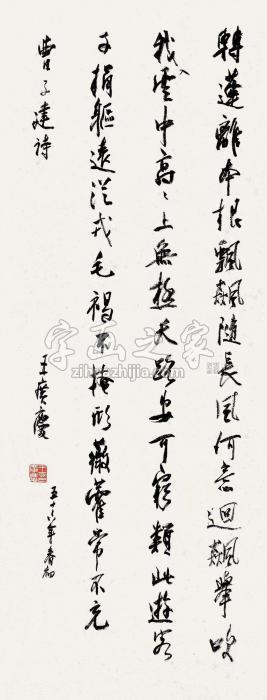 轉蓬離本根飄飖隨長風何意迴飆舉吹
我入雲中高〻上無極天路安可窮類此遊客
子捐軀遠從戎毛褐不掩形薇藿常不充
曹子建詩
王廣慶
五十六年春初
字画之家
zihuazhijia.com